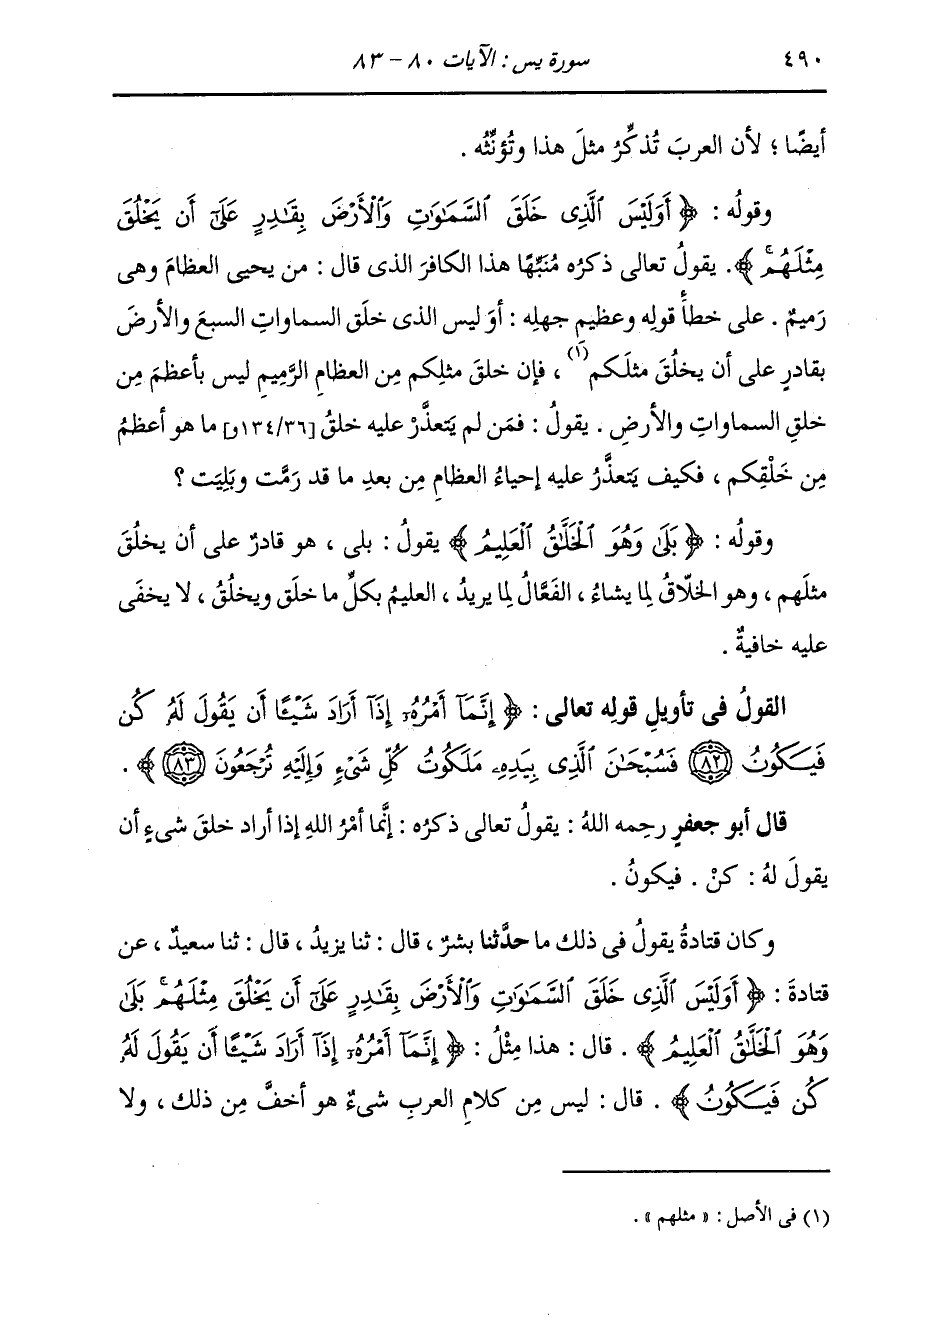 ٤٩٠ سورة يس : الآيات ٨٠ - ٨٣
أيضًا ؛ لأن العربَ تُذكِّرُ مثلَ هذا وتُؤنِّثُه .
وقولُه : ﴿ أَوَلَيْسَ ٱلَّذِى خَلَقَ ٱلسَّمَٰوَٰتِ وَٱلْأَرْضَ بِقَٰدِرٍ عَلَىٰٓ أَن يَخْلُقَ
مِثْلَهُمْ ﴾ . يقولُ تعالى ذكرُه مُنَبِّهًا هذا الكافرَ الذى قال : من يحيى العظامَ وهى
رَميمٌ . على خطأ قولِه وعظيمِ جهلِه : أوَ ليس الذى خلَق السماواتِ السبعَ والأرضَ
بقادرٍ على أن يخلُقَ مثلَكم(١) ، فإن خلقَ مثلِكم مِن العظامِ الرَّميمِ ليس بأعظمَ مِن
خلقِ السماواتِ والأرضِ . يقولُ : فمَن لم يَتعذَّرْ عليه خلقُ [١٣٤/٣٦و] ما هو أعظمُ
مِن خَلْقِكم ، فكيف يَتعذَّرُ عليه إحياءُ العظامِ مِن بعدِ ما قد رَمَّت وبَلِيَت ؟
وقولُه : ﴿ بَلَىٰ وَهُوَ ٱلْخَلَّٰقُ ٱلْعَلِيمُ ﴾ يقولُ : بلى ، هو قادرٌ على أن يخلُقَ
مثلَهم ، وهو الخلَّاقُ لِما يشاءُ ، الفَعَّالُ لِما يريدُ ، العليمُ بكلِّ ما خلَق ويخلُقُ ، لا يخفَى
عليه خافيةٌ .
القولُ فى تأويلِ قولِه تعالى : ﴿ إِنَّمَآ أَمْرُهُۥٓ إِذَآ أَرَادَ شَيْـًٔا أَن يَقُولَ لَهُۥ كُن
فَيَكُونُ ٨٢ فَسُبْحَٰنَ ٱلَّذِى بِيَدِهِۦ مَلَكُوتُ كُلِّ شَىْءٍ وَإِلَيْهِ تُرْجَعُونَ ٨٣ ﴾ .
قال أبو جعفرٍ رحِمه اللهُ : يقولُ تعالى ذكرُه : إنَّما أمْرُ اللهِ إذا أراد خلقَ شىءٍ أن
يقولَ لهُ : كنْ . فيكونُ .
وكان قتادةُ يقولُ فى ذلك ما حدَّثنا بشرٌ ، قال : ثنا يزيدُ ، قال : ثنا سعيدٌ ، عن
قتادةَ : ﴿ أَوَلَيْسَ ٱلَّذِى خَلَقَ ٱلسَّمَٰوَٰتِ وَٱلْأَرْضَ بِقَٰدِرٍ عَلَىٰٓ أَن يَخْلُقَ مِثْلَهُمۚ بَلَىٰ
وَهُوَ ٱلْخَلَّٰقُ ٱلْعَلِيمُ ﴾ . قال : هذا مِثْلُ : ﴿ إِنَّمَآ أَمْرُهُۥٓ إِذَآ أَرَادَ شَيْـًٔا أَن يَقُولَ لَهُۥ
كُن فَيَكُونُ ﴾ . قال : ليس مِن كلامِ العربِ شىءٌ هو أخفَّ مِن ذلك ، ولا
(١) فى الأصل : « مثلهم » .